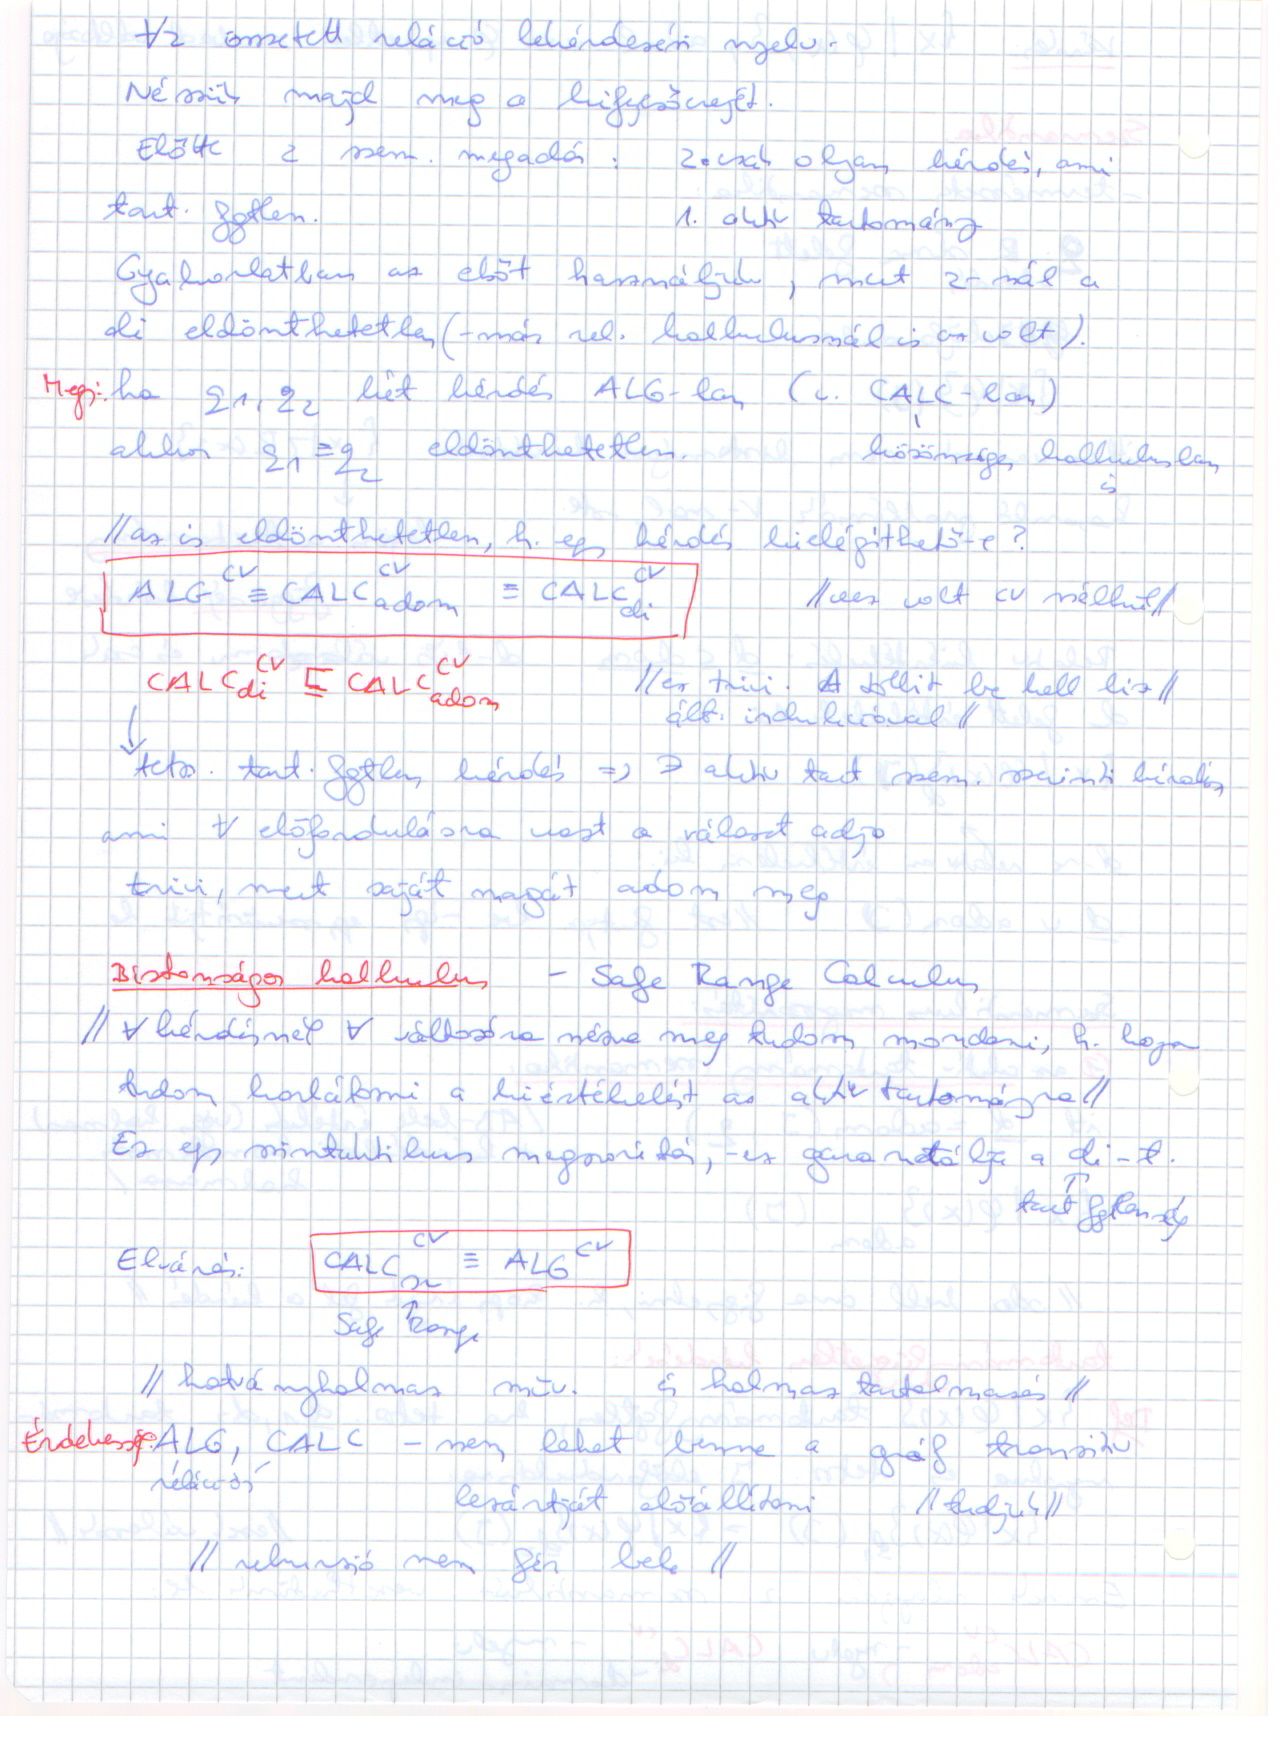 Az összetett reláció lekérdezési nyelv.
Nézzük majd meg a kifejezőerejét.
Előtte 2 szem. megadás: 2. csak olyan kérdés, ami
tart. fgtlen. 1. aktív tartomány
Gyakorlatban az előt használjuk, mert 2-nál a
di eldönthetetlen (-már rel. kalkulusnál is az volt).
Megj: ha q1, q2 két kérdés ALG-ban (v. CALC-ban)
akkor q1 ≡ q2 eldönthetetlen. közönséges kalkulusban
is
// az is eldönthetetlen, h. egy kérdés kielégíthető-e?
ALG^CV ≡ CALC^CV_adom ≡ CALC^CV_di // ez volt CV nélkül //
CALC^CV_di ⊑ CALC^CV_adom // ez trivi. A többit be kell biz //
ált. indukcióval //
tetsz. tart. fgtlen kérdés => ∃ aktív tart szem. szerinti kérdés,
ami ∀ előfordulásra uazt a választ adja
trivi, mert saját magát adom meg
Biztonságos kalkulus - Safe Range Calculus
// ∀ kérdésnél ∀ változóra nézve meg tudom mondani, h. hogyan
tudom korlátozni a kiértékelést az aktív tartományra //
Ez egy szintaktikus megszorítás, -ez garantálja a di-t.
tart fgtlenség
Elvárás: CALC^CV_sr ≡ ALG^CV
Safe Range
// hatványhalmaz műv. és halmaz tartalmazás //
Érdekesség: ALG, CALC - nem lehet benne a gráf tranzitív
relációs lezártját előállítani // tudjuk //
// rekurzió nem fér bele //